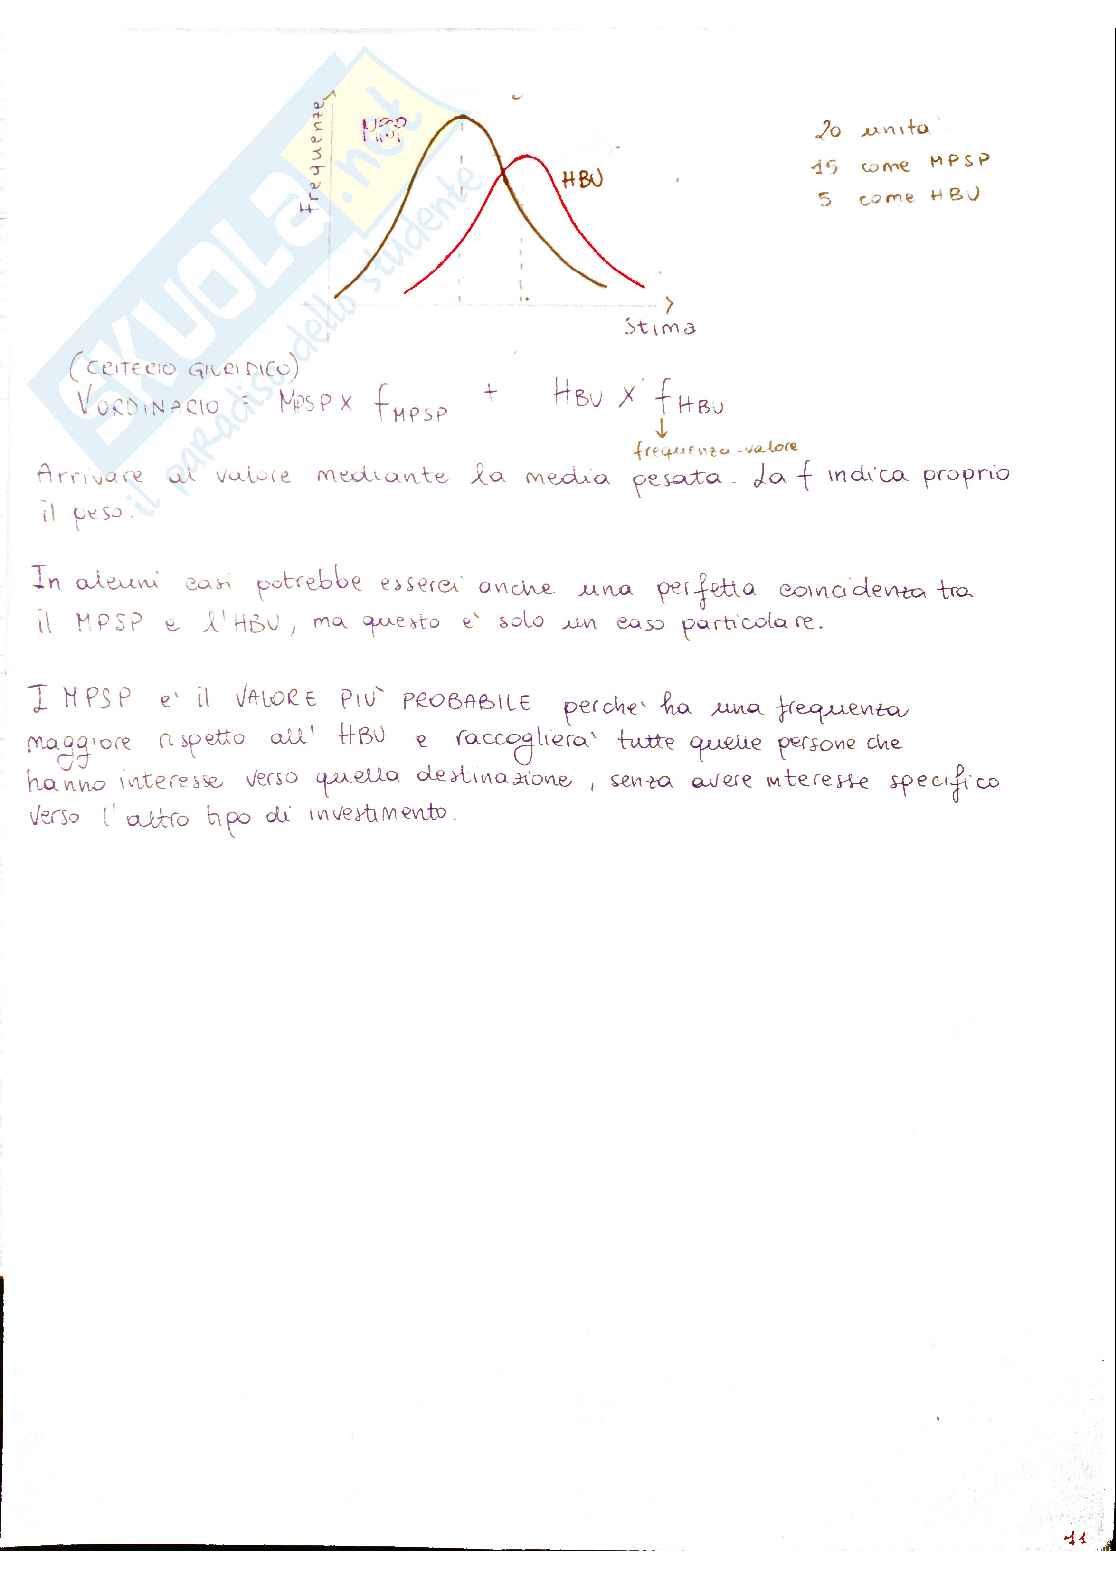 SKUOLA.net
il paradiso dello studente
frequenze
HBU
Stima
20 unita
15 come MPSP
5 come HBU
(CRITERIO GIURIDICO)
VORDINARIO = MPSP x fMPSP + HBU x fHBU
↓
frequenza-valore
Arrivare al valore mediante la media pesata. La f indica proprio
il peso.
In alcuni casi potrebbe esserci anche una perfetta coincidenza tra
il MPSP e l'HBU, ma questo è solo un caso particolare.
I MPSP e' il VALORE PIU' PROBABILE perche' ha una frequenza
maggiore rispetto all' HBU e raccogliera' tutte quelle persone che
hanno interesse verso quella destinazione, senza avere interesse specifico
verso l'altro tipo di investimento.
11